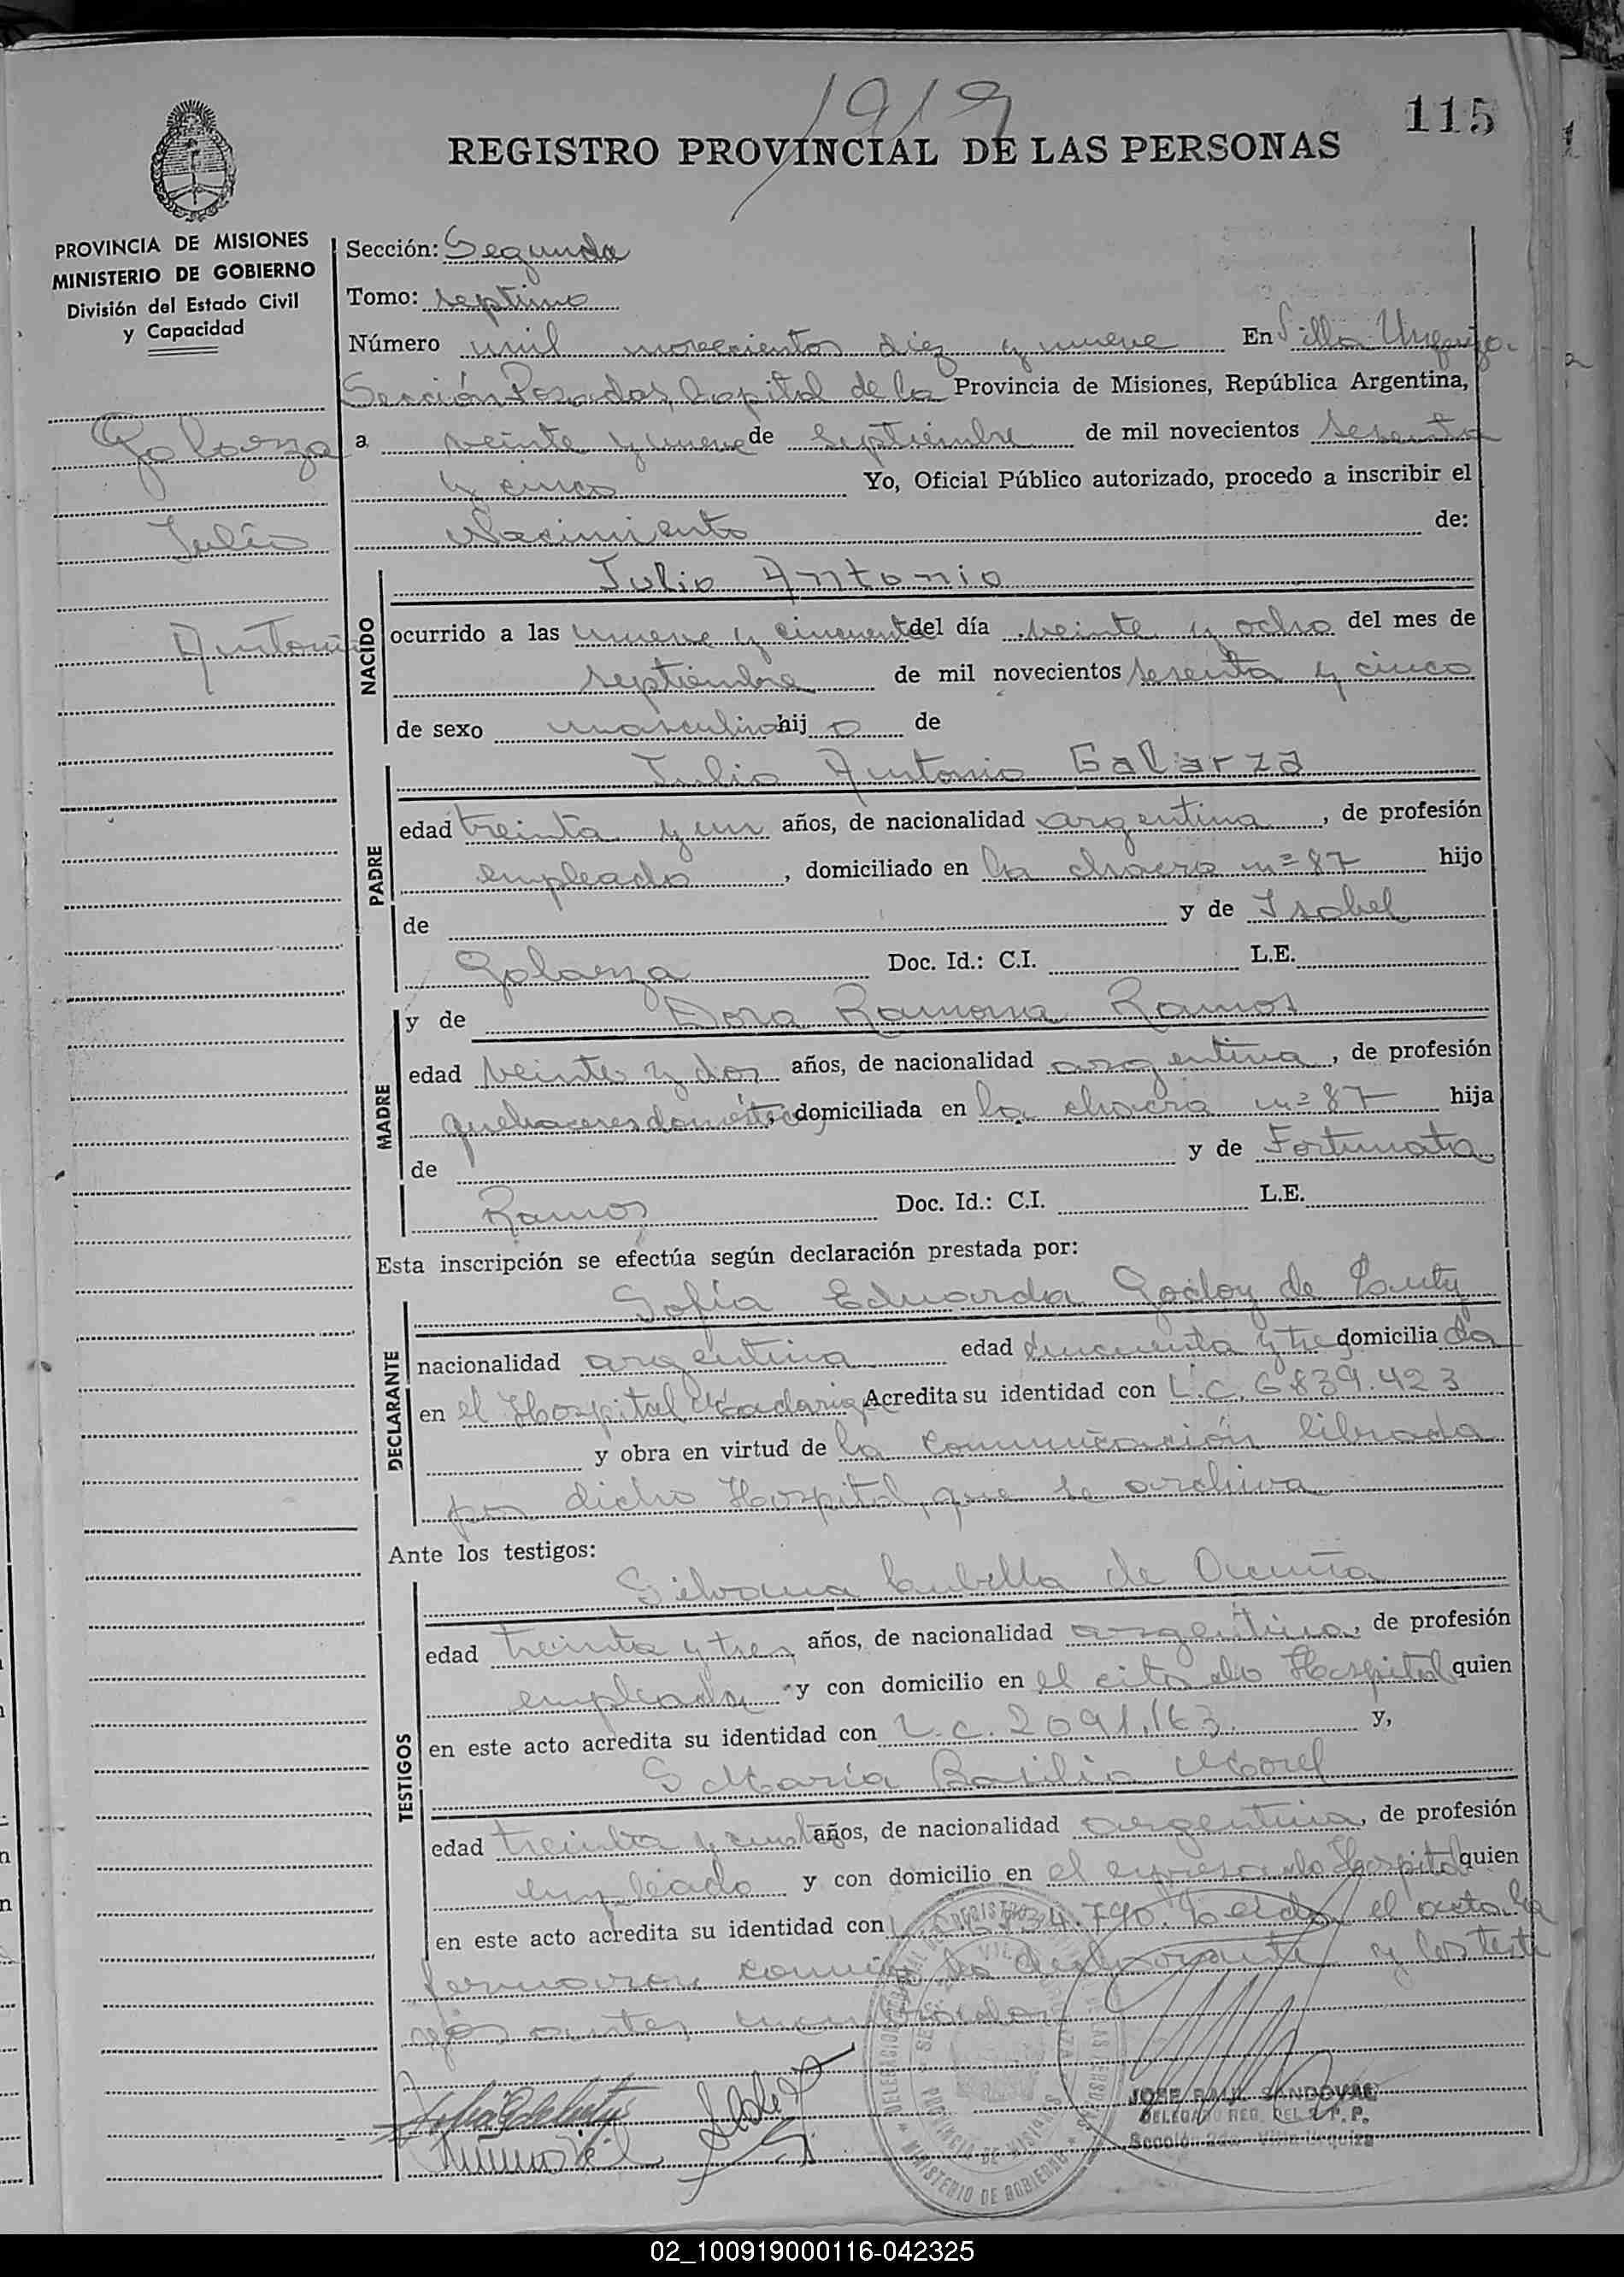 1919
115
REGISTRO PROVINCIAL DE LAS PERSONAS
PROVINCIA DE MISIONES
MINISTERIO DE GOBIERNO
División del Estado Civil
y Capacidad
Galarza
Julio
Antonio
Sección: Segunda
Tomo: septimo
Número mil novecientos diez y nueve En Villa Urquiza
Sección Posadas, Capital de la Provincia de Misiones, República Argentina,
a veinte y nueve de septiembre de mil novecientos sesenta
y cinco Yo, Oficial Público autorizado, procedo a inscribir el
Nacimiento de:
NACIDO
Julio Antonio
ocurrido a las nueve y cincuenta del día veinte y ocho del mes de
septiembre de mil novecientos sesenta y cinco
de sexo masculino hijo de
PADRE
Julio Antonio Galarza
edad treinta y un años, de nacionalidad argentina, de profesión
empleado, domiciliado en la chacra nº 87 hijo
de y de Isabel
Galarza Doc. Id.: C.I. L.E.
MADRE
y de Dora Ramona Ramos
edad veinte y dos años, de nacionalidad argentina, de profesión
quehaceres domésticos, domiciliada en la chacra nº 87 hija
de y de Fortunata
Ramos Doc. Id.: C.I. L.E.
Esta inscripción se efectúa según declaración prestada por:
DECLARANTE
Sofía Eduarda Godoy de
nacionalidad argentina edad cincuenta y tres domiciliada
en el Hospital Madariaga Acredita su identidad con L.C. 6839.423
y obra en virtud de la comunicación librada
por dicho Hospital, que se archiva
Ante los testigos:
TESTIGOS
Silvana Cubilla de Acuña
edad treinta y tres años, de nacionalidad argentina, de profesión
empleada y con domicilio en el citado Hospital quien
en este acto acredita su identidad con L.C. 2091.163. y,
María Basilia Morel
edad treinta y años, de nacionalidad argentina, de profesión
empleado y con domicilio en el expresado Hospital quien
en este acto acredita su identidad con 34.790. Leída el acta la
firmaron conmigo la declarante y los testi
gos antes mencionados
JOSE RAUL SANDOVAL
DELEGADO REG. DEL R. P. P.
Sección 2da. Villa Urquiza
PROVINCIA DE MISIONES
MINISTERIO DE GOBIERNO
02_100919000116-042325